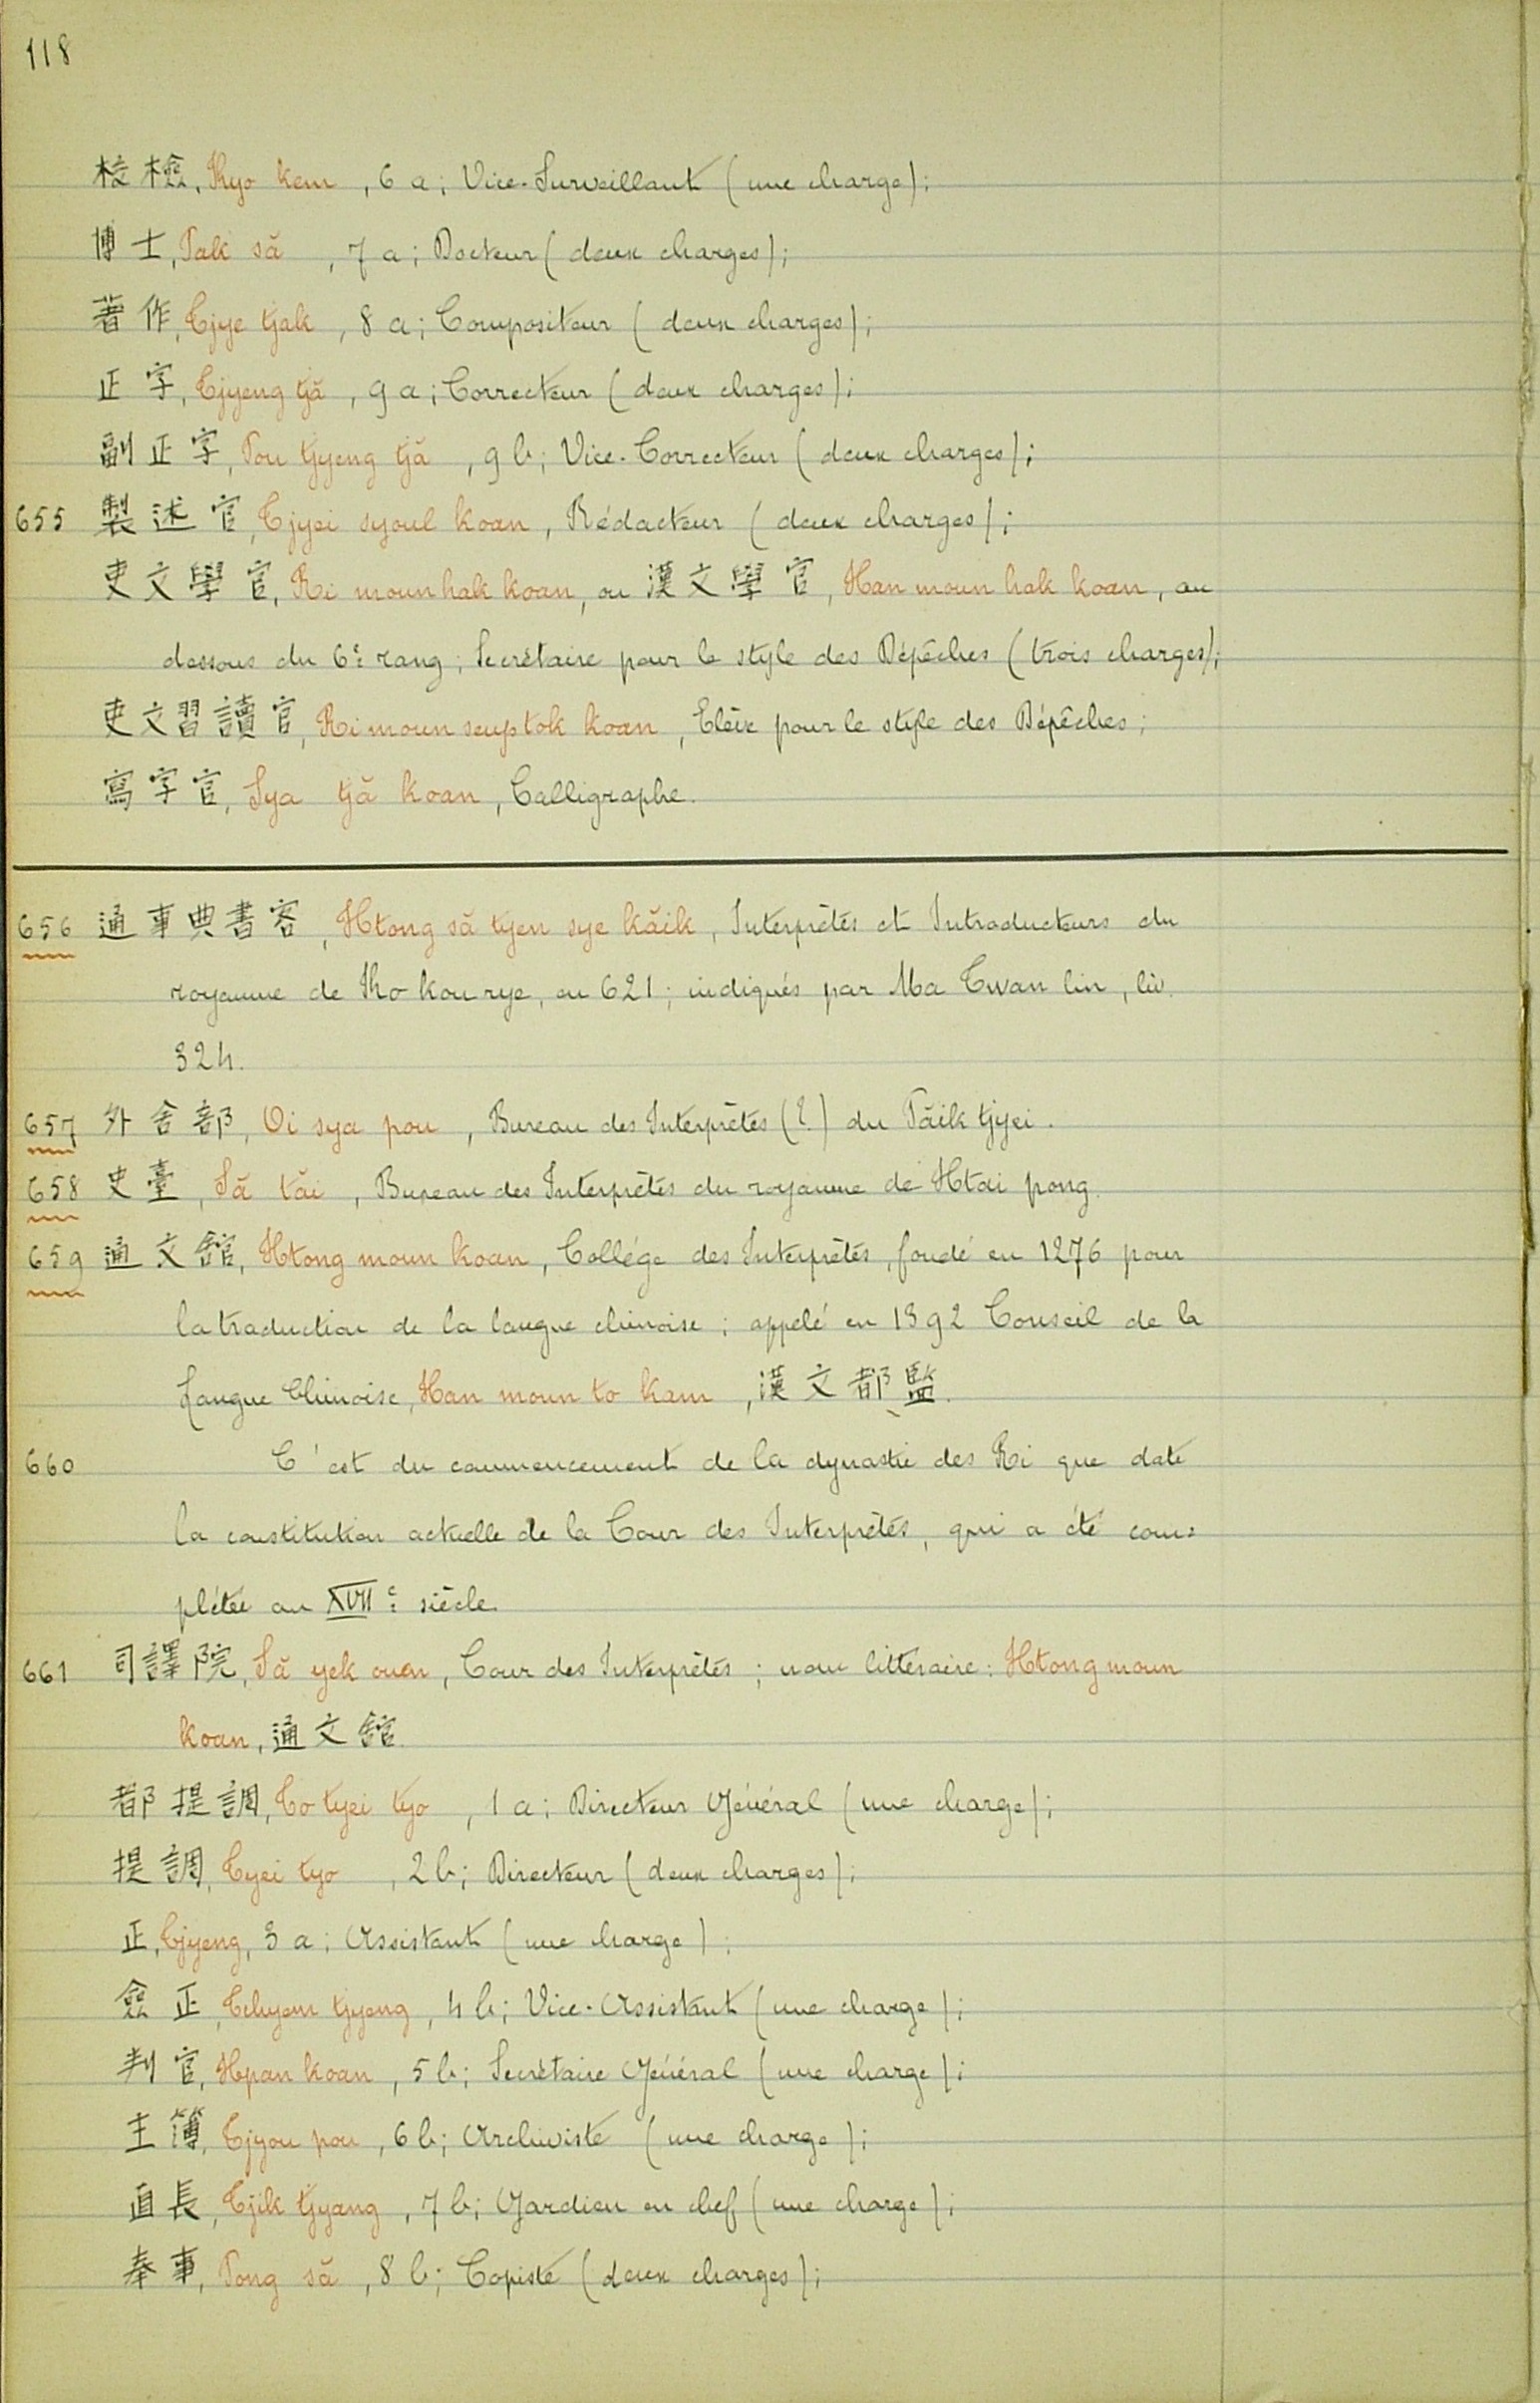 118
校檢, Kyo kem, 6 a; Vice-Surveillant (une charge);
博士, Pak să, 7 a; Docteur (deux charges);
著作, Tjye tjak, 8 a; Compositeur (deux charges);
正字, Tjyeng tjă, 9 a; Correcteur (deux charges);
副正字, Pou tjyeng tjă, 9 b; Vice-Correcteur (deux charges);
655 製述官, Tjyei syoul koan, Rédacteur (deux charges);
吏文學官, Ri moun hak koan, ou 漢文學官, Han moun hak koan, au
dessous du 6e rang; Secrétaire pour le style des Dépêches (trois charges);
吏文習讀官, Ri moun seup tok koan, Elève pour le style des Dépêches;
寫字官, Sya tjă koan, Calligraphe.
656 通事典書客, Htong să tyen sye kăik, Interprètes et Introducteurs du
royaume de Ko kou rye, en 621; indiqués par Ma Twan lin, liv.
324.
657 外舍部, Oi sya pou, Bureau des Interprètes (?) du Păik tjyei.
658 史臺, Să tăi, Bureau des Interprètes du royaume de Htai pong.
659 通文館, Htong moun koan, Collége des Interprètes, fondé en 1276 pour
la traduction de la langue chinoise; appelé en 1392 Conseil de la
Langue Chinoise, Han moun to kam, 漢文都監.
660 C'est du commencement de la dynastie des Ri que date
la constitution actuelle de la Cour des Interprètes, qui a été com=
plétée au XVIIe siècle.
661 司譯院, Să yek ouen, Cour des Interprètes; nom littéraire: Htong moun
koan, 通文館.
都提調, To tyei tyo, 1 a; Directeur Général (une charge);
提調, Tyei tyo, 2 b; Directeur (deux charges);
正, Tjyeng, 3 a; Assistant (une charge);
僉正, Tchyem tjyeng, 4 b; Vice-Assistant (une charge);
判官, Hpan koan, 5 b; Secrétaire Général (une charge);
主簿, Tjyou pou, 6 b; Archiviste (une charge);
直長, Tjik tjyang, 7 b; Gardien en chef (une charge);
奉事, Pong să, 8 b; Copiste (deux charges);